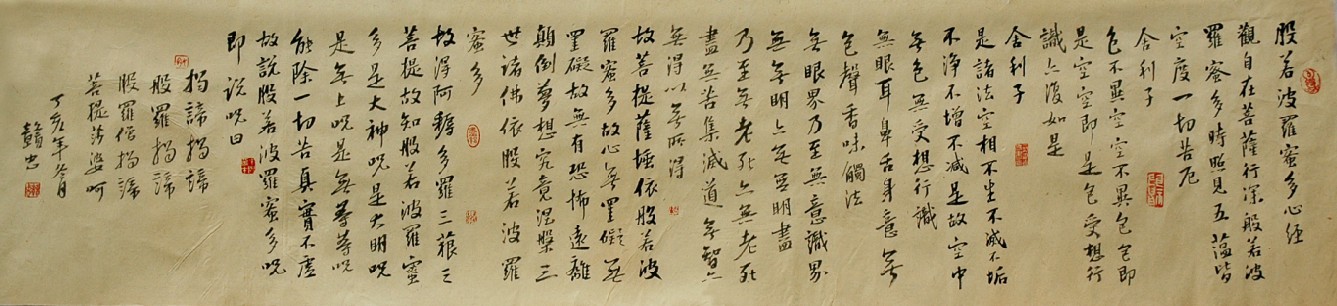 般若波羅蜜多心经
觀自在菩薩行深般若波
羅蜜多時照見五蕴皆
空度一切苦厄
舍利子
色不異空空不異色色即
是空空即是色受想行
識亦復如是
舍利子
是諸法空相不生不滅不垢
不淨不增不減是故空中
無色無受想行識
無眼耳鼻舌身意無
色聲香味觸法
無眼界乃至無意識界
無無明亦無無明盡
乃至無老死亦無老死
盡無苦集滅道無智亦
無得以無所得
故菩提薩埵依般若波
羅蜜多故心無罣礙無
罣礙故無有恐怖遠離
顛倒夢想究竟涅槃三
世諸佛依般若波羅
蜜多
故得阿耨多羅三藐三
菩提故知般若波羅蜜
多是大神呪是大明呪
是無上呪是無等等呪
能除一切苦真實不虛
故説般若波羅蜜多呪
即説呪曰
揭諦揭諦
般羅揭諦
般羅僧揭諦
菩提莎婆呵
丁亥年冬月